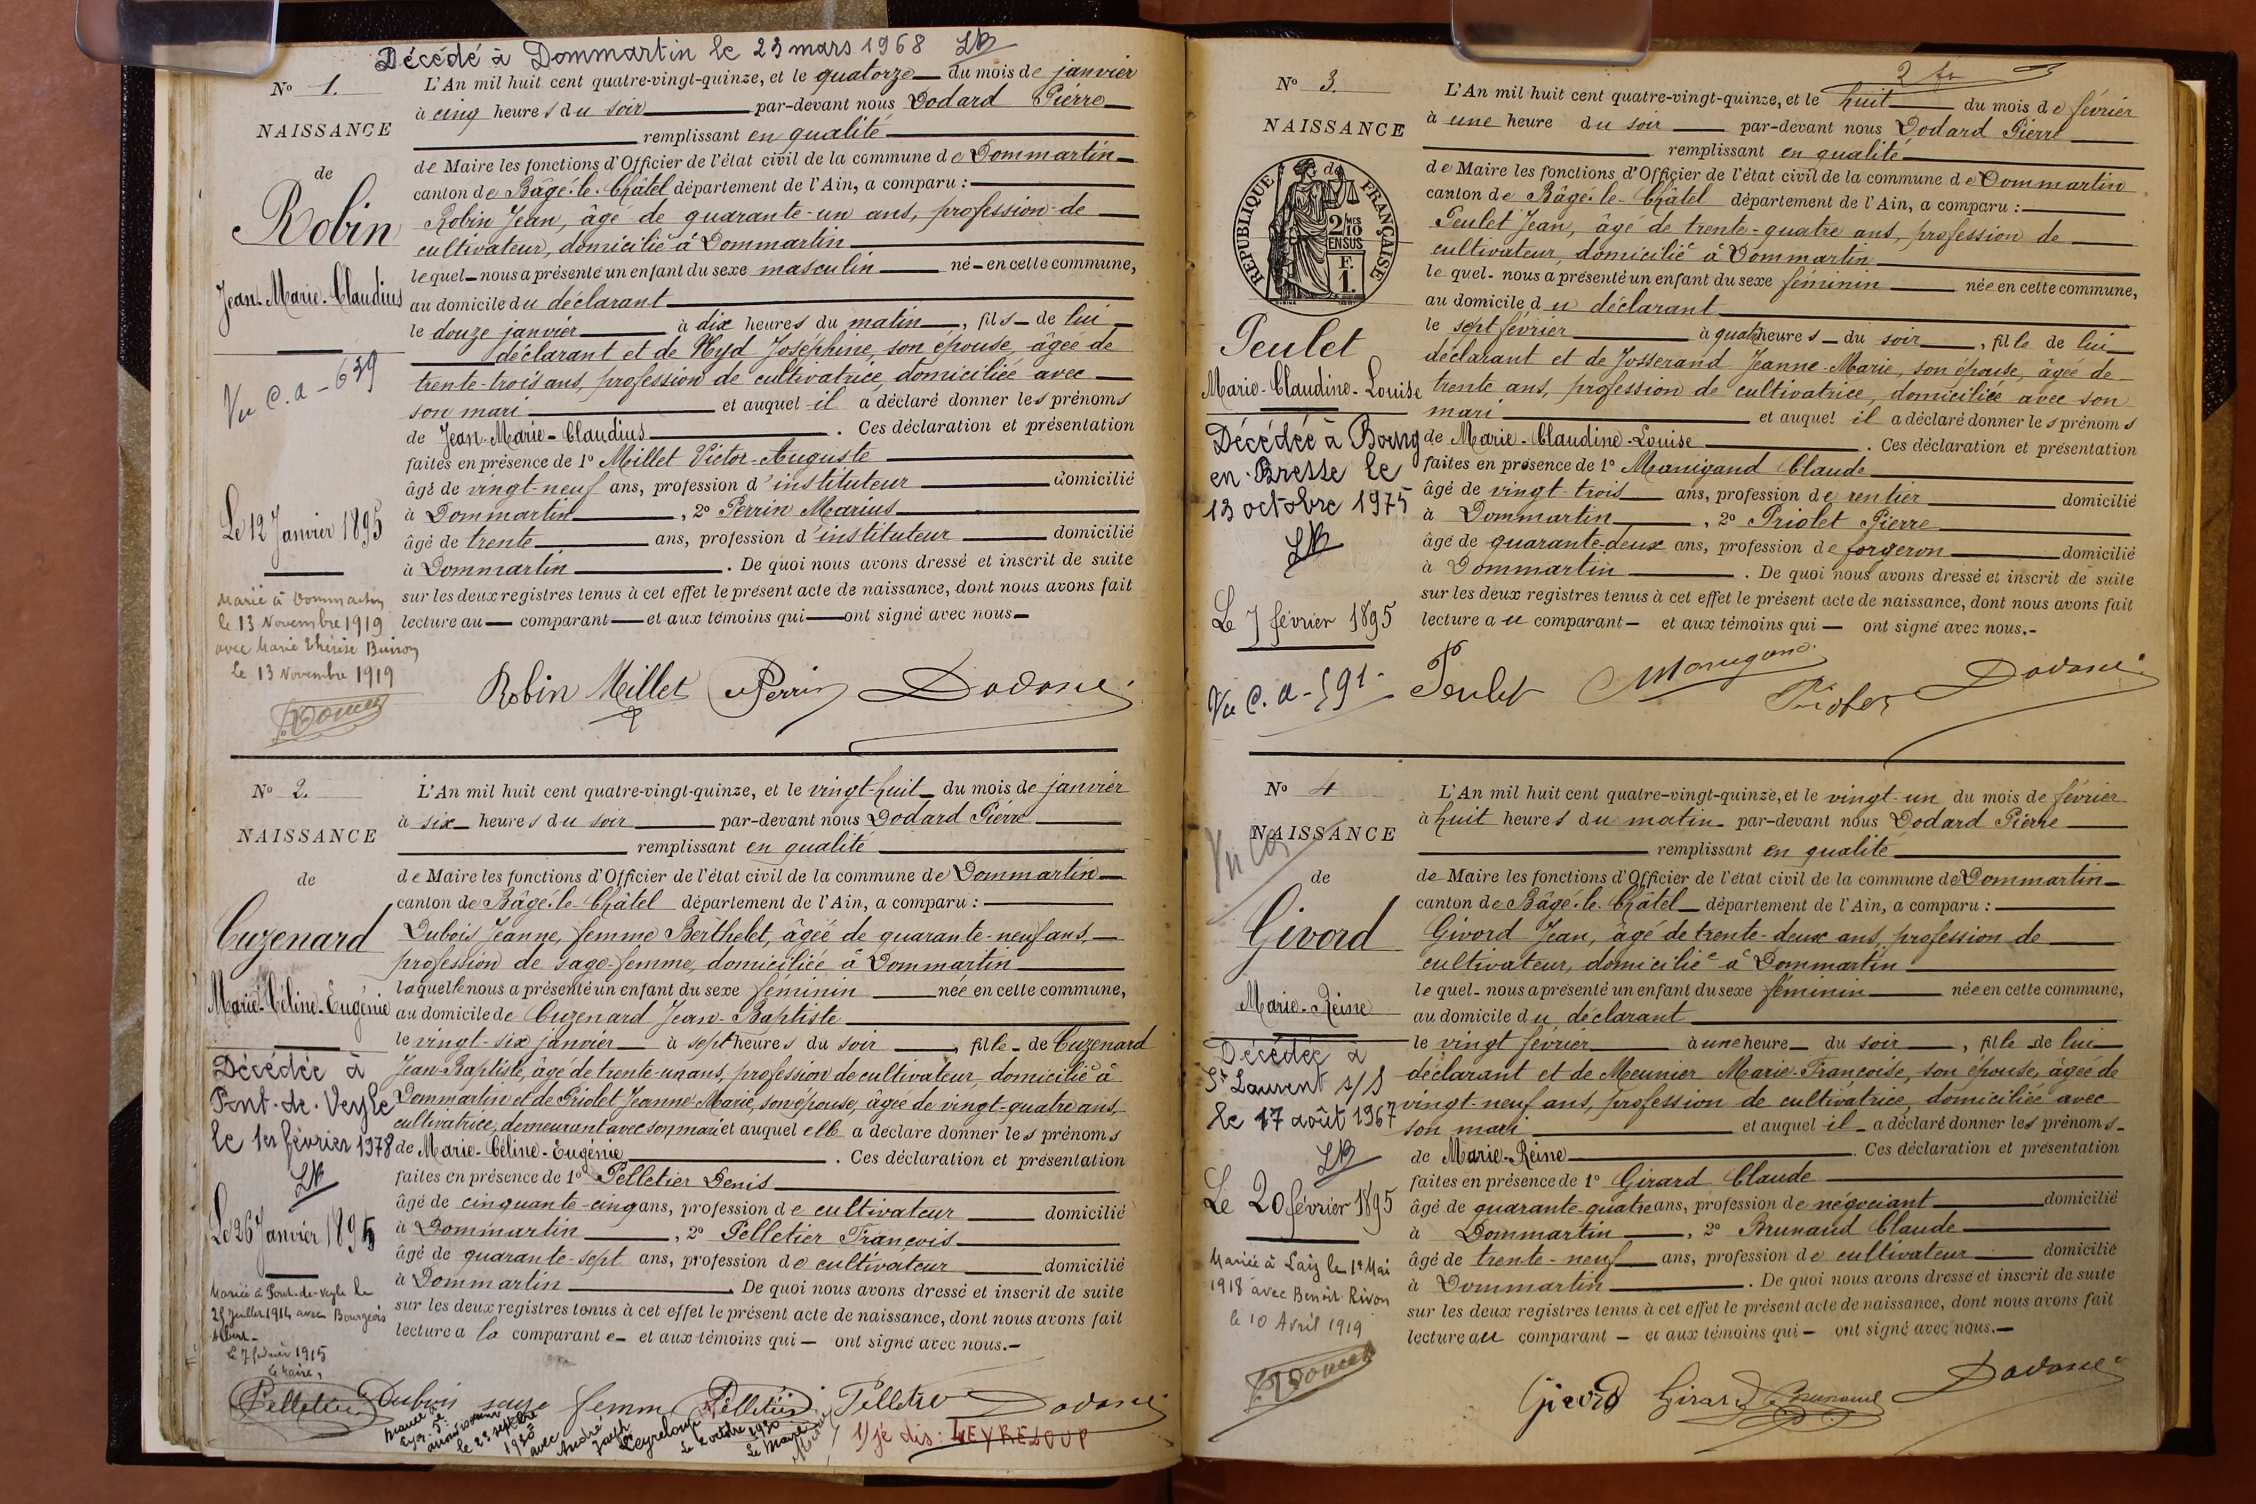 Décédé à Dommartin le 23 mars 1968
N° 1.
NAISSANCE
de
Robin
Jean-Marie-Claudius
Vu C.a - 639
Le 12 Janvier 1895
Marié à Dommartin
le 13 Novembre 1919
avec Marie Thérèse Buiron
le 13 Novembre 1919
L'An mil huit cent quatre-vingt-quinze, et le quatorze du mois de janvier
à cinq heures du soir par-devant nous Dodard Pierre
remplissant en qualité
de Maire les fonctions d'Officier de l'état civil de la commune de Dommartin
canton de Bâgé-le-Châtel département de l'Ain, a comparu :
Robin Jean, âgé de quarante-un ans, profession de
cultivateur, domicilié à Dommartin
lequel nous a présenté un enfant du sexe masculin né en cette commune,
au domicile du déclarant
le douze janvier à dix heures du matin, fils de lui
déclarant et de Hyd Joséphine, son épouse, âgée de
trente-trois ans, profession de cultivatrice, domiciliée avec
son mari et auquel il a déclaré donner les prénoms
de Jean-Marie-Claudius. Ces déclaration et présentation
faites en présence de 1° Millet Victor-Auguste
âgé de vingt-neuf ans, profession d'instituteur domicilié
à Dommartin, 2° Perrin Marius
âgé de trente ans, profession d'instituteur domicilié
à Dommartin. De quoi nous avons dressé et inscrit de suite
sur les deux registres tenus à cet effet le présent acte de naissance, dont nous avons fait
lecture au comparant et aux témoins qui ont signé avec nous
Robin Millet Perrin Dodard
N° 2.
NAISSANCE
de
Cuzenard
Marie-Céline-Eugénie
Décédée à
Pont-de-Veyle
le 1er février 1978
Le 26 Janvier 1895
Mariée à Pont-de-Veyle le
25 Juillet 1914 avec Bourgeois
Albert
le 7 février 1915
Le Maire,
L'An mil huit cent quatre-vingt-quinze, et le vingt-huit du mois de janvier
à six heures du soir par-devant nous Dodard Pierre
remplissant en qualité
de Maire les fonctions d'Officier de l'état civil de la commune de Dommartin
canton de Bâgé-le-Châtel département de l'Ain, a comparu :
Dubois Jeanne, femme Berthelet, âgée de quarante-neuf ans,
profession de sage-femme, domiciliée à Dommartin
laquelle nous a présenté un enfant du sexe féminin née en cette commune,
au domicile de Cuzenard Jean-Baptiste
le vingt-six janvier à sept heures du soir, fille de Cuzenard
Jean-Baptiste, âgé de trente-un ans, profession de cultivateur, domicilié à
Dommartin et de Priolet Jeanne-Marie, son épouse, âgée de vingt-quatre ans,
cultivatrice, demeurant avec son mari et auquel elle a déclaré donner les prénoms
de Marie-Céline-Eugénie. Ces déclaration et présentation
faites en présence de 1° Pelletier Denis
âgé de cinquante-cinq ans, profession de cultivateur domicilié
à Dommartin, 2° Pelletier François
âgé de quarante-sept ans, profession de cultivateur domicilié
à Dommartin. De quoi nous avons dressé et inscrit de suite
sur les deux registres tenus à cet effet le présent acte de naissance, dont nous avons fait
lecture à la comparante et aux témoins qui ont signé avec nous.
Pelletier Dubois sage femme Pelletier Pelletier Dodard
le 23 septembre
1930
avec
André
Joseph
Leyreloup
le 2 octobre 1930
Le Maire
1) je dis : LEYRELOUP
N° 3.
NAISSANCE
RÉPUBLIQUE FRANÇAISE
2/10 MES
EN SUS
F.
1.
Peulet
Marie-Claudine-Louise
Décédée à Bourg
en-Bresse le
13 octobre 1975
Le 7 février 1895
Vu C.a - 591
L'An mil huit cent quatre-vingt-quinze, et le huit du mois de février
à une heure du soir par-devant nous Dodard Pierre
remplissant en qualité
de Maire les fonctions d'Officier de l'état civil de la commune de Dommartin
canton de Bâgé-le-Châtel département de l'Ain, a comparu :
Peulet Jean, âgé de trente-quatre ans, profession de
cultivateur, domicilié à Dommartin
lequel nous a présenté un enfant du sexe féminin née en cette commune,
au domicile du déclarant
le sept février à quatre heures du soir, fille de lui
déclarant et de Josserand Jeanne-Marie, son épouse, âgée de
trente ans, profession de cultivatrice, domiciliée avec son
mari et auquel il a déclaré donner les prénoms
de Marie-Claudine-Louise. Ces déclaration et présentation
faites en présence de 1° Manigand Claude
âgé de vingt-trois ans, profession de rentier domicilié
à Dommartin, 2° Priolet Pierre
âgé de quarante-deux ans, profession de forgeron domicilié
à Dommartin. De quoi nous avons dressé et inscrit de suite
sur les deux registres tenus à cet effet le présent acte de naissance, dont nous avons fait
lecture au comparant et aux témoins qui ont signé avec nous.
Peulet Manigand Priolet Dodard
N° 4
NAISSANCE
de
Givord
Marie-Reine
Décédée à
St Laurent s/S
le 17 août 1967
Le 20 février 1895
Mariée à Laiz le 1er Mai
1918 avec Benoit Rivon
le 10 Avril 1919
L'An mil huit cent quatre-vingt-quinze, et le vingt-un du mois de février
à huit heures du matin par-devant nous Dodard Pierre
remplissant en qualité
de Maire les fonctions d'Officier de l'état civil de la commune de Dommartin
canton de Bâgé-le-Châtel département de l'Ain, a comparu :
Givord Jean, âgé de trente-deux ans, profession de
cultivateur, domicilié à Dommartin
lequel nous a présenté un enfant du sexe féminin née en cette commune,
au domicile du déclarant
le vingt février à une heure du soir, fille de lui
déclarant et de Meunier Marie-Françoise, son épouse, âgée de
vingt-neuf ans, profession de cultivatrice, domiciliée avec
son mari et auquel il a déclaré donner les prénoms
de Marie-Reine. Ces déclaration et présentation
faites en présence de 1° Girard Claude
âgé de quarante-quatre ans, profession de négociant domicilié
à Dommartin, 2° Brunaud Claude
âgé de trente-neuf ans, profession de cultivateur domicilié
à Dommartin. De quoi nous avons dressé et inscrit de suite
sur les deux registres tenus à cet effet le présent acte de naissance, dont nous avons fait
lecture au comparant et aux témoins qui ont signé avec nous.
Givord Girard Brunaud Dodard